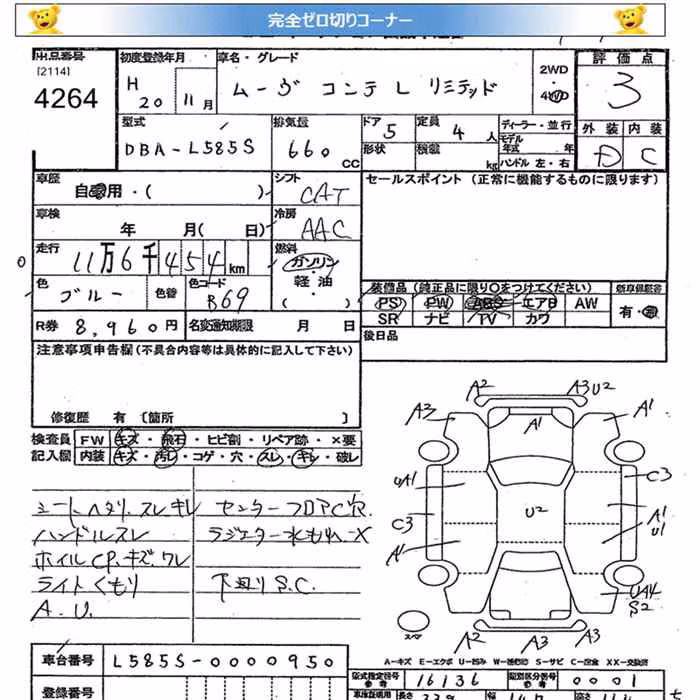 完全ゼロ切りコーナー
出品番号 初度登録年月 車名・グレード 2WD 評価点
[2114]
4264 H 20 11月 ムーヴ コンテ L リミテッド 4WD 3
型式 排気量 ドア 5 定員 4人 ディーラー・並行 外装 内装
DBA-L585S 660 CC 形状 積載 kg モデル年式 年 ハンドル 左・右 D C
車歴 自家用・( ) シフト CAT セールスポイント (正常に機能するものに限ります)
車検 年 月( 日) 冷房 AAC
走行 11万6千454km 燃料 ガソリン・軽油 ( )
色 ブルー 色替 色コード B69 装備品 (純正品に限り○をつけてください) 新車保証書
PS PW ABS エアB AW 有・無
R券 8,960円 名変通知期限 月 日 SR ナビ TV カワ
後日品
注意事項申告欄 (不具合内容等は具体的に記入して下さい)
修復歴 有 〔箇所 〕
検査員 FW キズ・飛石・ヒビ割・リペア跡・×要
記入欄 内装 キズ・汚レ・コゲ・穴・スレ・キレ・破レ
シートヘタリ.スレキレ センターフロアC穴
ハンドルスレ ラジエター水もれ-X
ホイルCP.キズ.ワレ
ライトくもり 下廻りS.C.
A.U.
A2 A3 U2
A3 A1 A1
UA1 C3
C3 U2 A1 U1
A1 UA4 S2
スペア A2 A3 A2
A-キズ E-エクボ U-凹み W-補修跡 S-サビ C-腐食 XX-交換済
車台番号 L585S-0000950 型式指定番号 参考 16136 類別区分番号 参考 0001
登録番号 長さ 幅 高さ